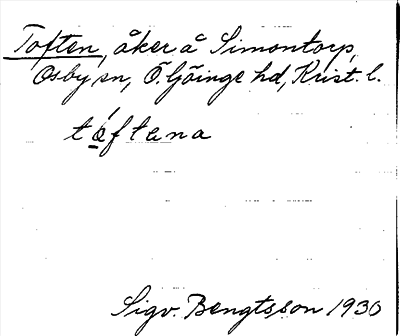 Toften, åker å Simontorp,
Osby sn, Ö. Göinge hd, Krist. l.
tó̱ftena
Sigv. Bengtsson 1930